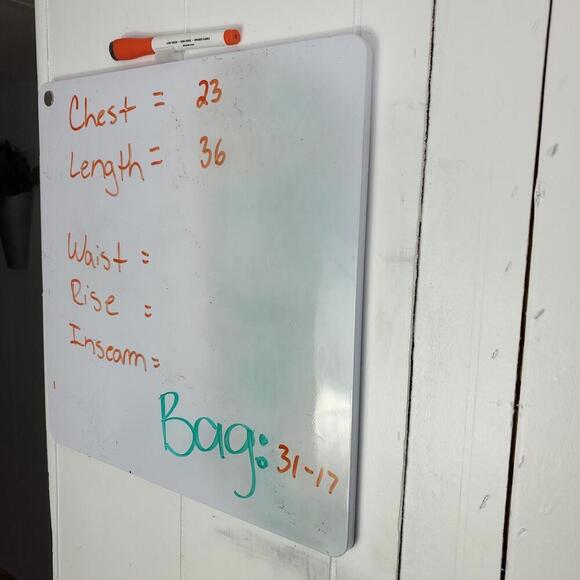 Chest = 23
Length = 36
Waist =
Rise =
Inseam =
Bag: 31-17